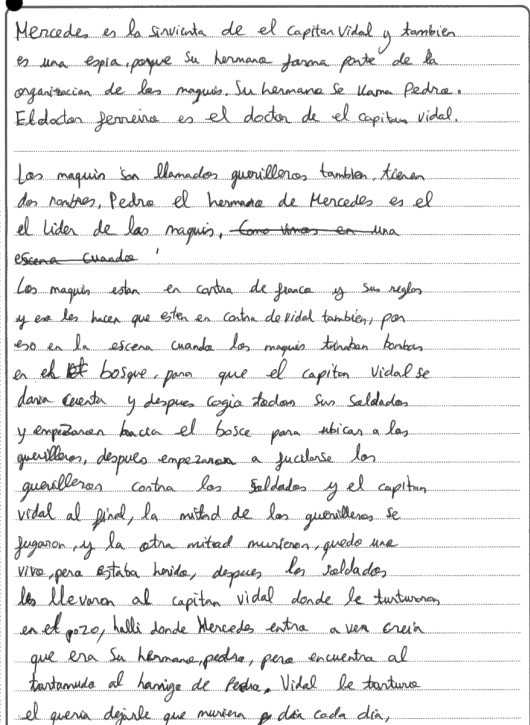 Mercedes es la sirvienta de el capitan Vidal y tambien
es una espia, porque su hermano forma parte de la
organizacion de los maquis. Su hermano se llama Pedro.
El doctor ferreiro es el doctor de el capitan vidal.
Los maquis son llamados guerilleros tambien, tienen
dos nombres, Pedro el hermano de Mercedes es el
el lider de los maquis, como vimos en una
escena cuando
Los maquis estan en contra de franco y sus reglas
y eso les hacen que esten en contra de vidal tambien, por
eso en la escena cuando los maquis tiraban bonbas
en el bosque, para que el capitan Vidal se
daria cuenta y despues cogio todos sus soldados
y empezaron hacia el bosce para ubicar a los
guerilleros, despues empezaron a fucilarse los
guerilleros contra los soldados y el capitan
vidal al final, la mitad de los guerilleros se
fugaron, y la otra mitad murieron, quedo uno
vivo, pero estaba herido, despues los soldados
les llevaron al capitan vidal donde le turturaron
en el pozo, halli donde Mercedes entra a ver creia
que era su hermano, pedro, pero encuentra al
tartamudo al hamigo de Pedro, Vidal le tarturo
el queria dejarle que muriera dia cada dia,